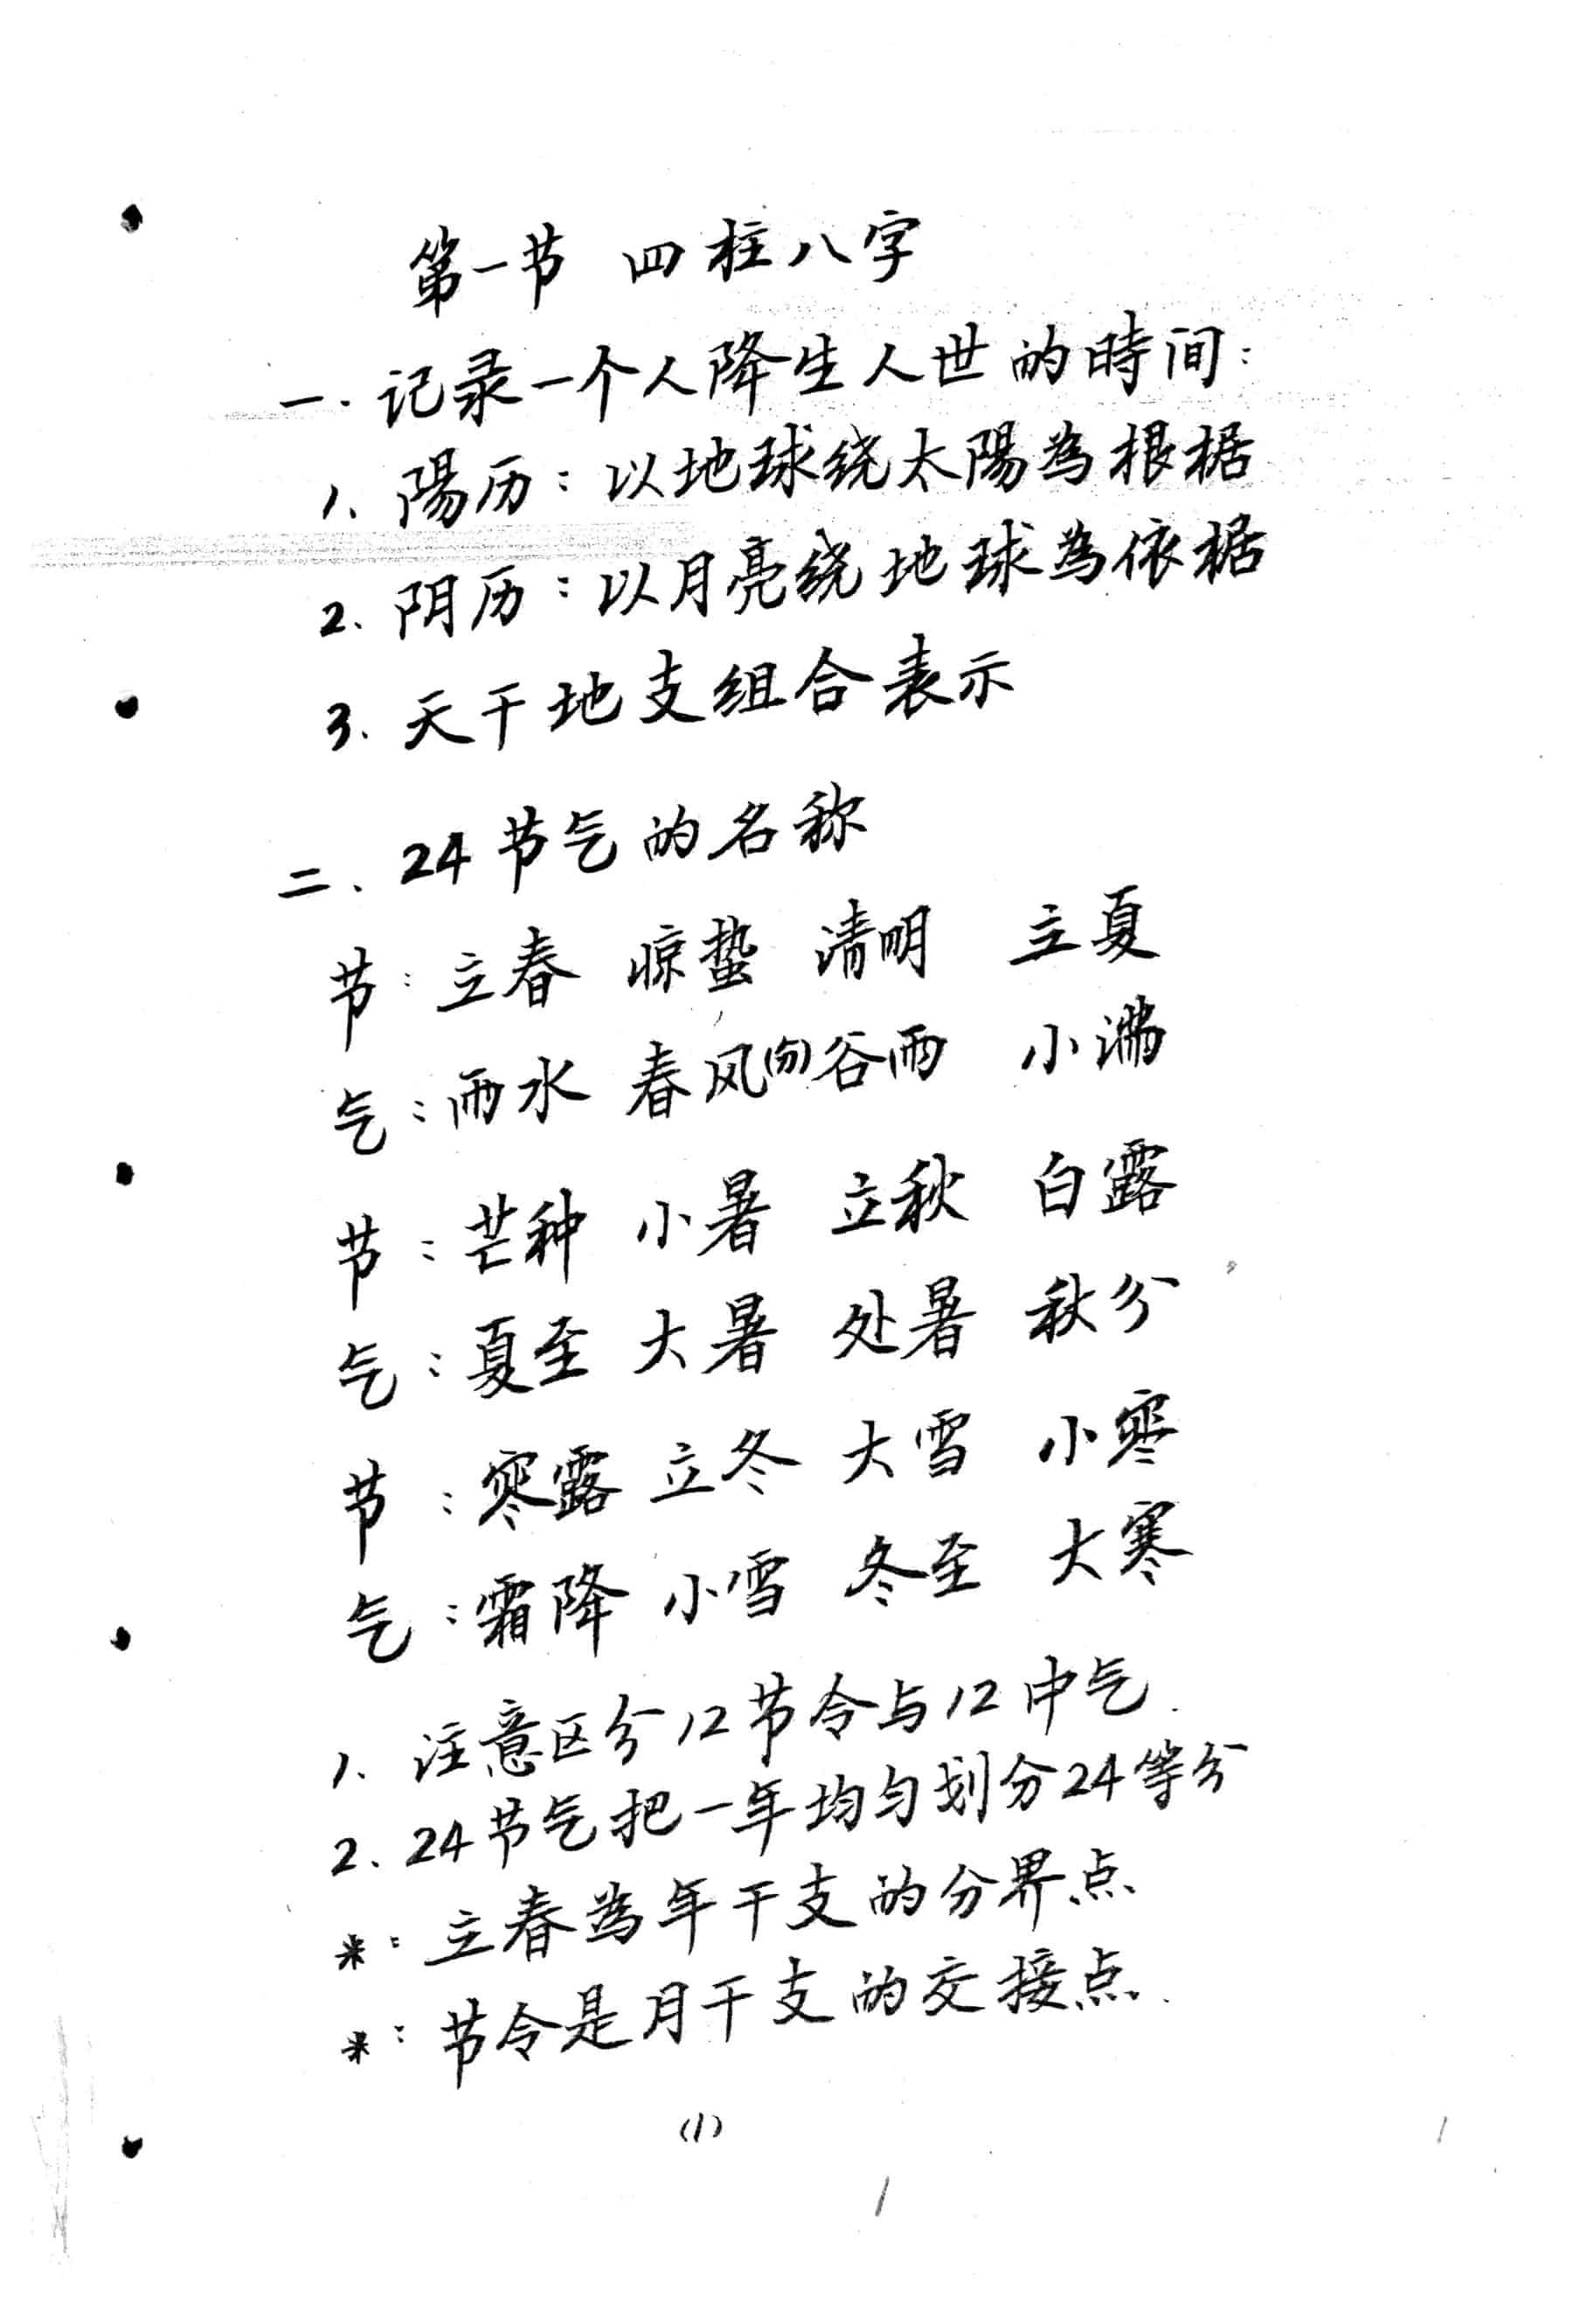 第一节 四柱八字
一. 记录一个人降生人世的時间:
1、陽历:以地球绕太陽為根据
2、阴历:以月亮绕地球為依据
3、天干地支组合表示
二、24节气的名称
节:立春 惊蛰 清明 立夏
气:雨水 春风(分)谷雨 小满
节:芒种 小暑 立秋 白露
气:夏至 大暑 处暑 秋分
节:寒露 立冬 大雪 小寒
气:霜降 小雪 冬至 大寒
1、注意区分12节令与12中气.
2、24节气把一年均匀划分24等分
*:立春為年干支的分界点
*:节令是月干支的交接点.
(1)
1